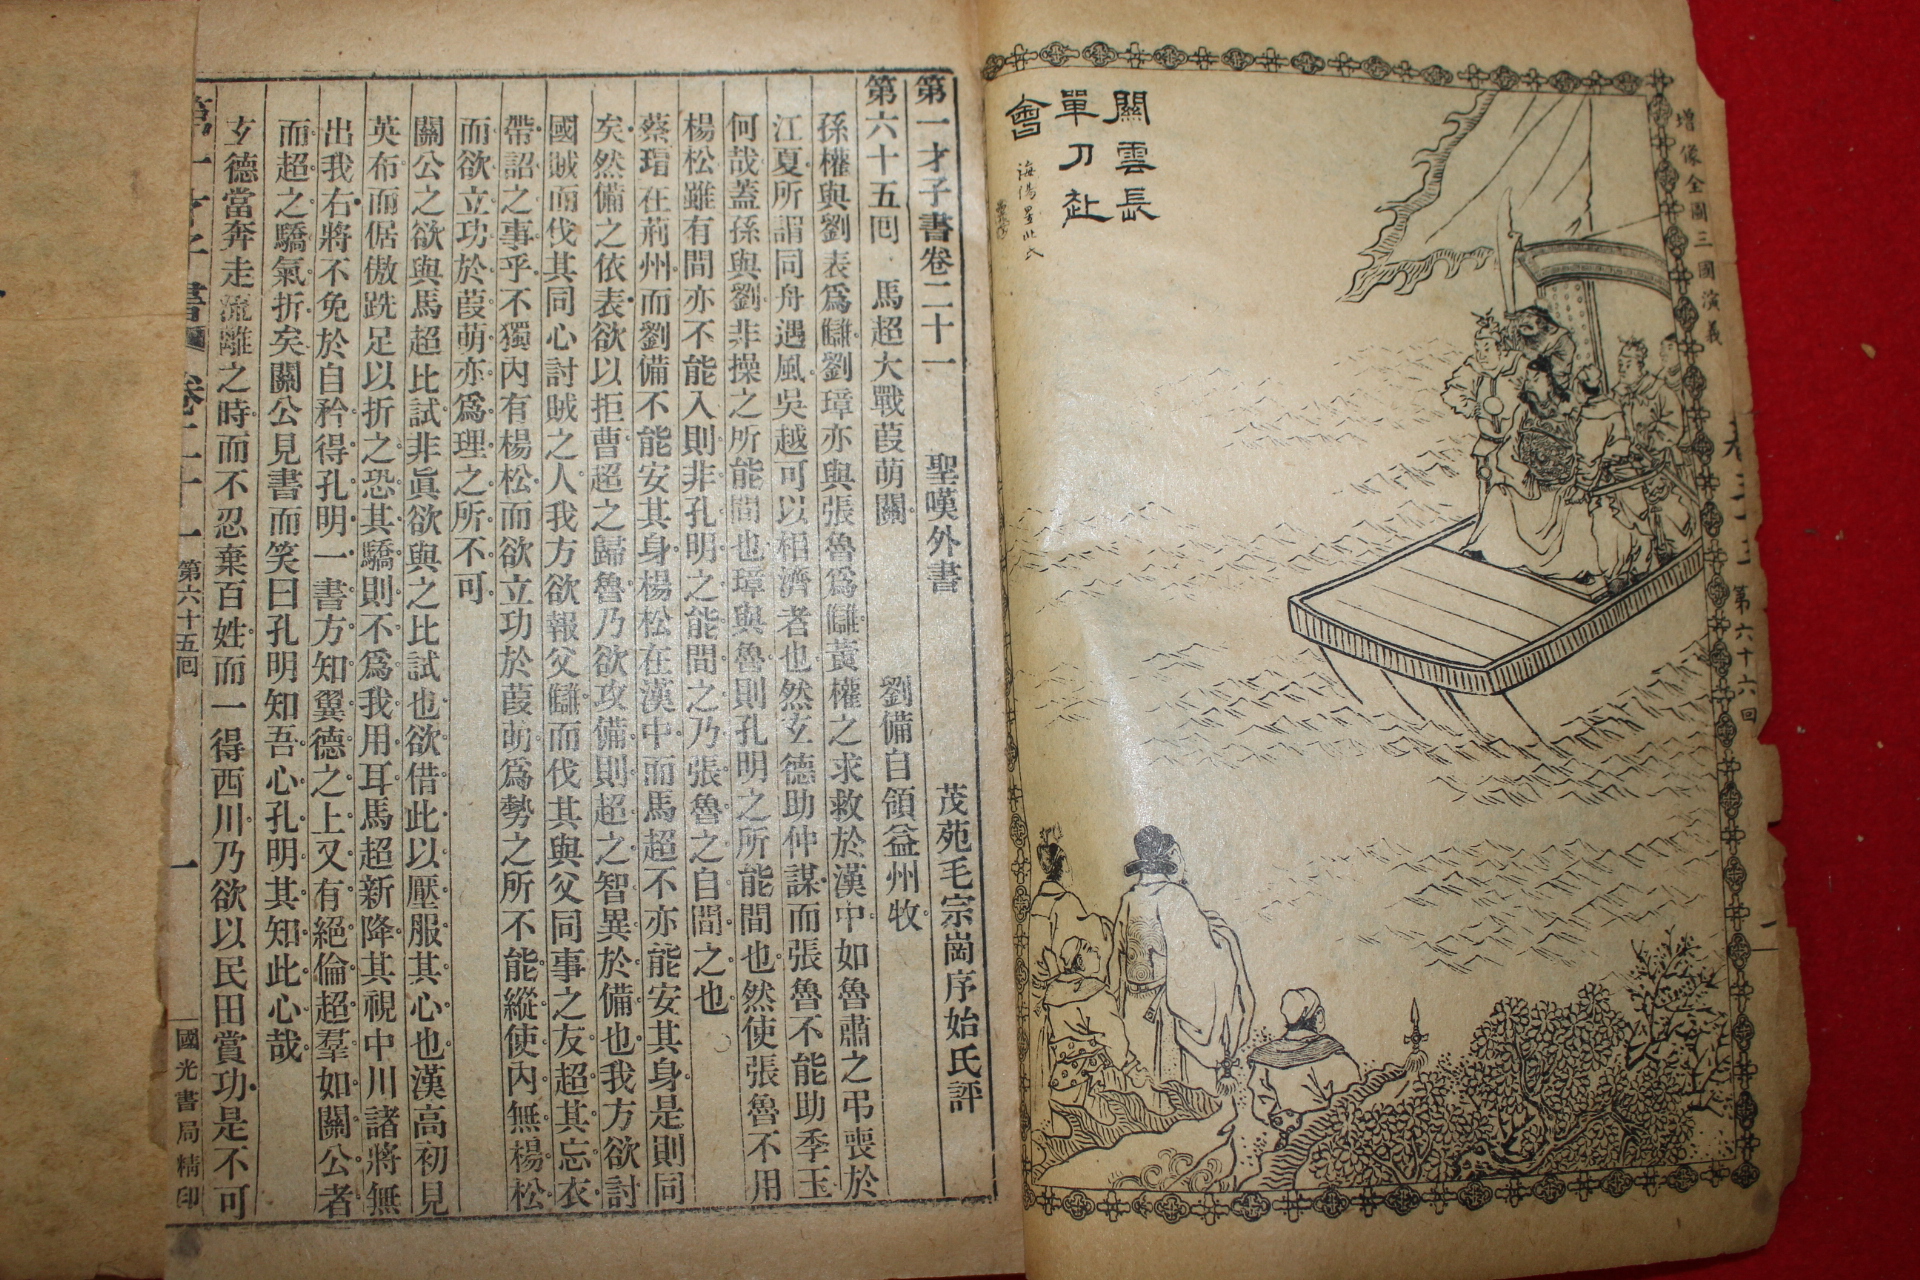 關雲長
單刀赴
會
增像全圖三國演義
第六十六回
第一才子書卷二十一 聖嘆外書 茂苑毛宗崗序始氏評
第六十五回 馬超大戰葭萌關 劉備自領益州牧
孫權與劉表爲讎劉璋亦與張魯爲讎黃權之求救於漢中如魯肅之弔喪於
江夏所謂同舟遇風吳越可以相濟者也然玄德助仲謀而張魯不能助季玉
何哉蓋孫與劉非操之所能間也璋與魯則孔明之所能間也然使張魯不用
楊松雖有間亦不能入則非孔明之能間之乃張魯之自間之也
蔡瑁在荊州而劉備不能安其身楊松在漢中而馬超不亦能安其身是則同
矣然備之依表欲以拒曹超之歸魯乃欲攻備則超之智異於備也我方欲討
國賊而伐其同心討賊之人我方欲報父讎而伐其與父同事之友超其忘衣
帶詔之事乎不獨內有楊松而欲立功於葭萌爲勢之所不能縱使內無楊松
而欲立功於葭萌亦爲理之所不可
關公之欲與馬超比試非眞欲與之比試也欲借此以壓服其心也漢高初見
英布而倨傲跣足以折之恐其驕則不爲我用耳馬超新降其視中川諸將無
出我右將不免於自矜得孔明一書方知翼德之上又有絕倫超羣如關公者
而超之驕氣折矣關公見書而笑曰孔明知吾心孔明其知此心哉
玄德當奔走流離之時而不忍棄百姓而一得西川乃欲以民田賞功是不可
第一才子書 卷二十一 第六十五回 一 國光書局精印